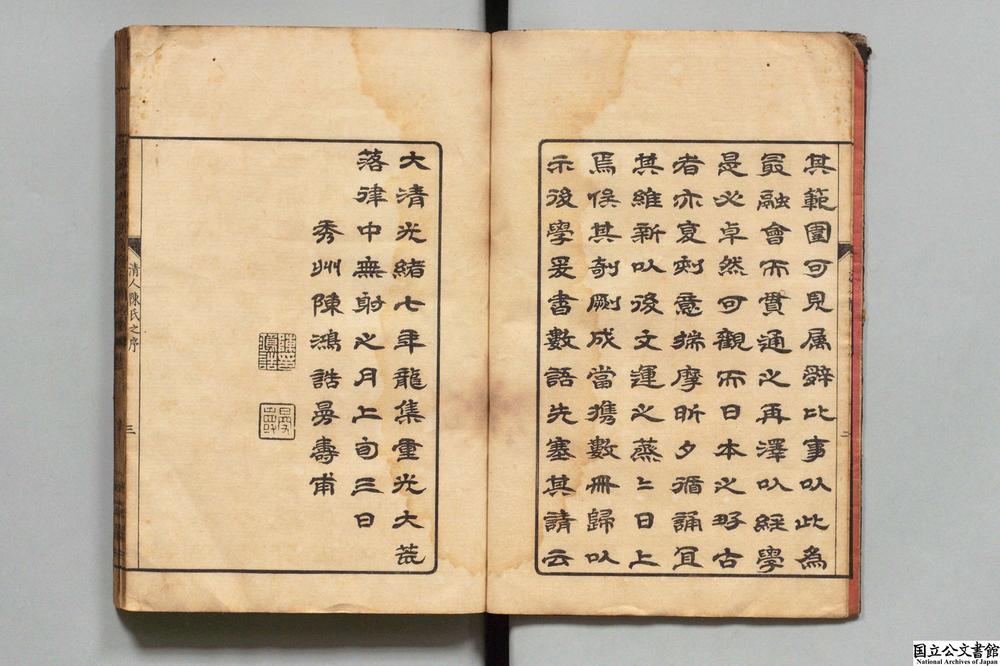 其範圍可見屬辭比事以此爲
最融會而貫通之再澤以經學
是必卓然可觀而日本之好古
者亦夏刻意揣摩昕夕循誦宜
其維新以後文運之蒸〻日上
焉俟其剞劂成當攜數冊歸以
示後學爰書數語先塞其請云
大清光緒七年龍集重光大荒
落律中無射之月上旬三日
秀州陳鴻誥曼壽甫
清人陳氏之序
三
二
国立公文書館
National Archives of Japan